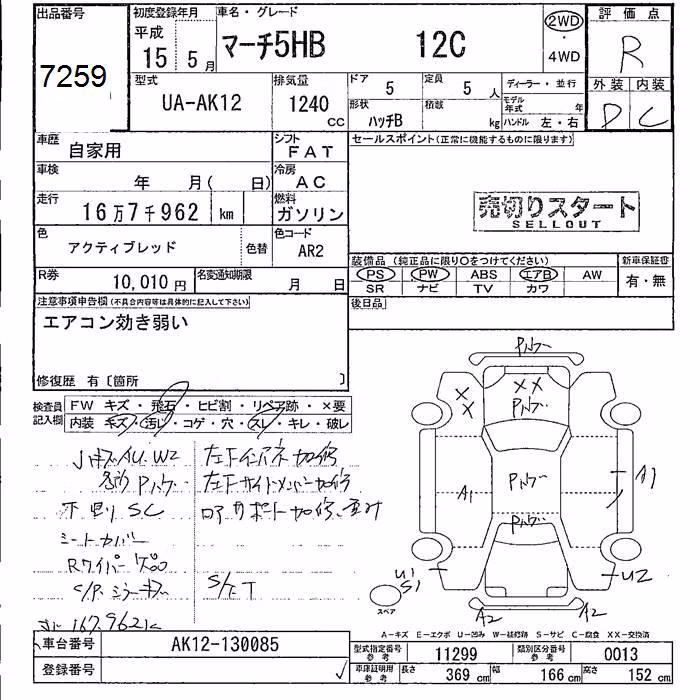 出品番号
7259
初度登録年月
平成
15年5月
車名・グレード
マーチ5HB 12C
2WD
・
4WD
評価点
R
型式
UA-AK12
排気量
1240
cc
ドア
5
定員
5人
形状
ハッチB
積載
kg
ディーラー・並行
モデル年式 年
ハンドル 左・右
外装 内装
D C
車歴
自家用
シフト
FAT
セールスポイント(正常に機能するものに限ります)
車検
年 月( 日)
冷房
AC
走行
16万7千962 km
燃料
ガソリン
売切りスタート
SELLOUT
色
アクティブレッド
色替
色コード
AR2
装備品 (純正品に限り○をつけてください)
新車保証書
PS PW ABS エアB AW
有・無
SR ナビ TV カワ
R券
10,010円
名変通知期限
月 日
後日品
注意事項申告欄(不具合内容等は具体的に記入して下さい)
エアコン効き弱い
修復歴 有〔箇所 〕
検査員記入欄
FW キズ・飛石・ヒビ割・リペア跡・×要
内装 キズ・汚レ・コゲ・穴・スレ・キレ・破レ
小キズAU.W2
SC
シートカバー
Rワイパー
C/P.ミラーキズ
167.962K
左サイドメンバー加修
S/T
Pハゲ
XX
XX
Pハゲ
A1
Pハゲ
A1
Pハゲ
U1
S1
U2
スペア
A2
A2
A-キズ E-エクボ U-凹み W-補修跡 S-サビ C-腐食 XX-交換済
車台番号
AK12-130085
型式指定番号
参考
11299
類別区分番号
参考
0013
登録番号
車庫証明用
参考
長さ
369 cm
幅
166 cm
高さ
152 cm